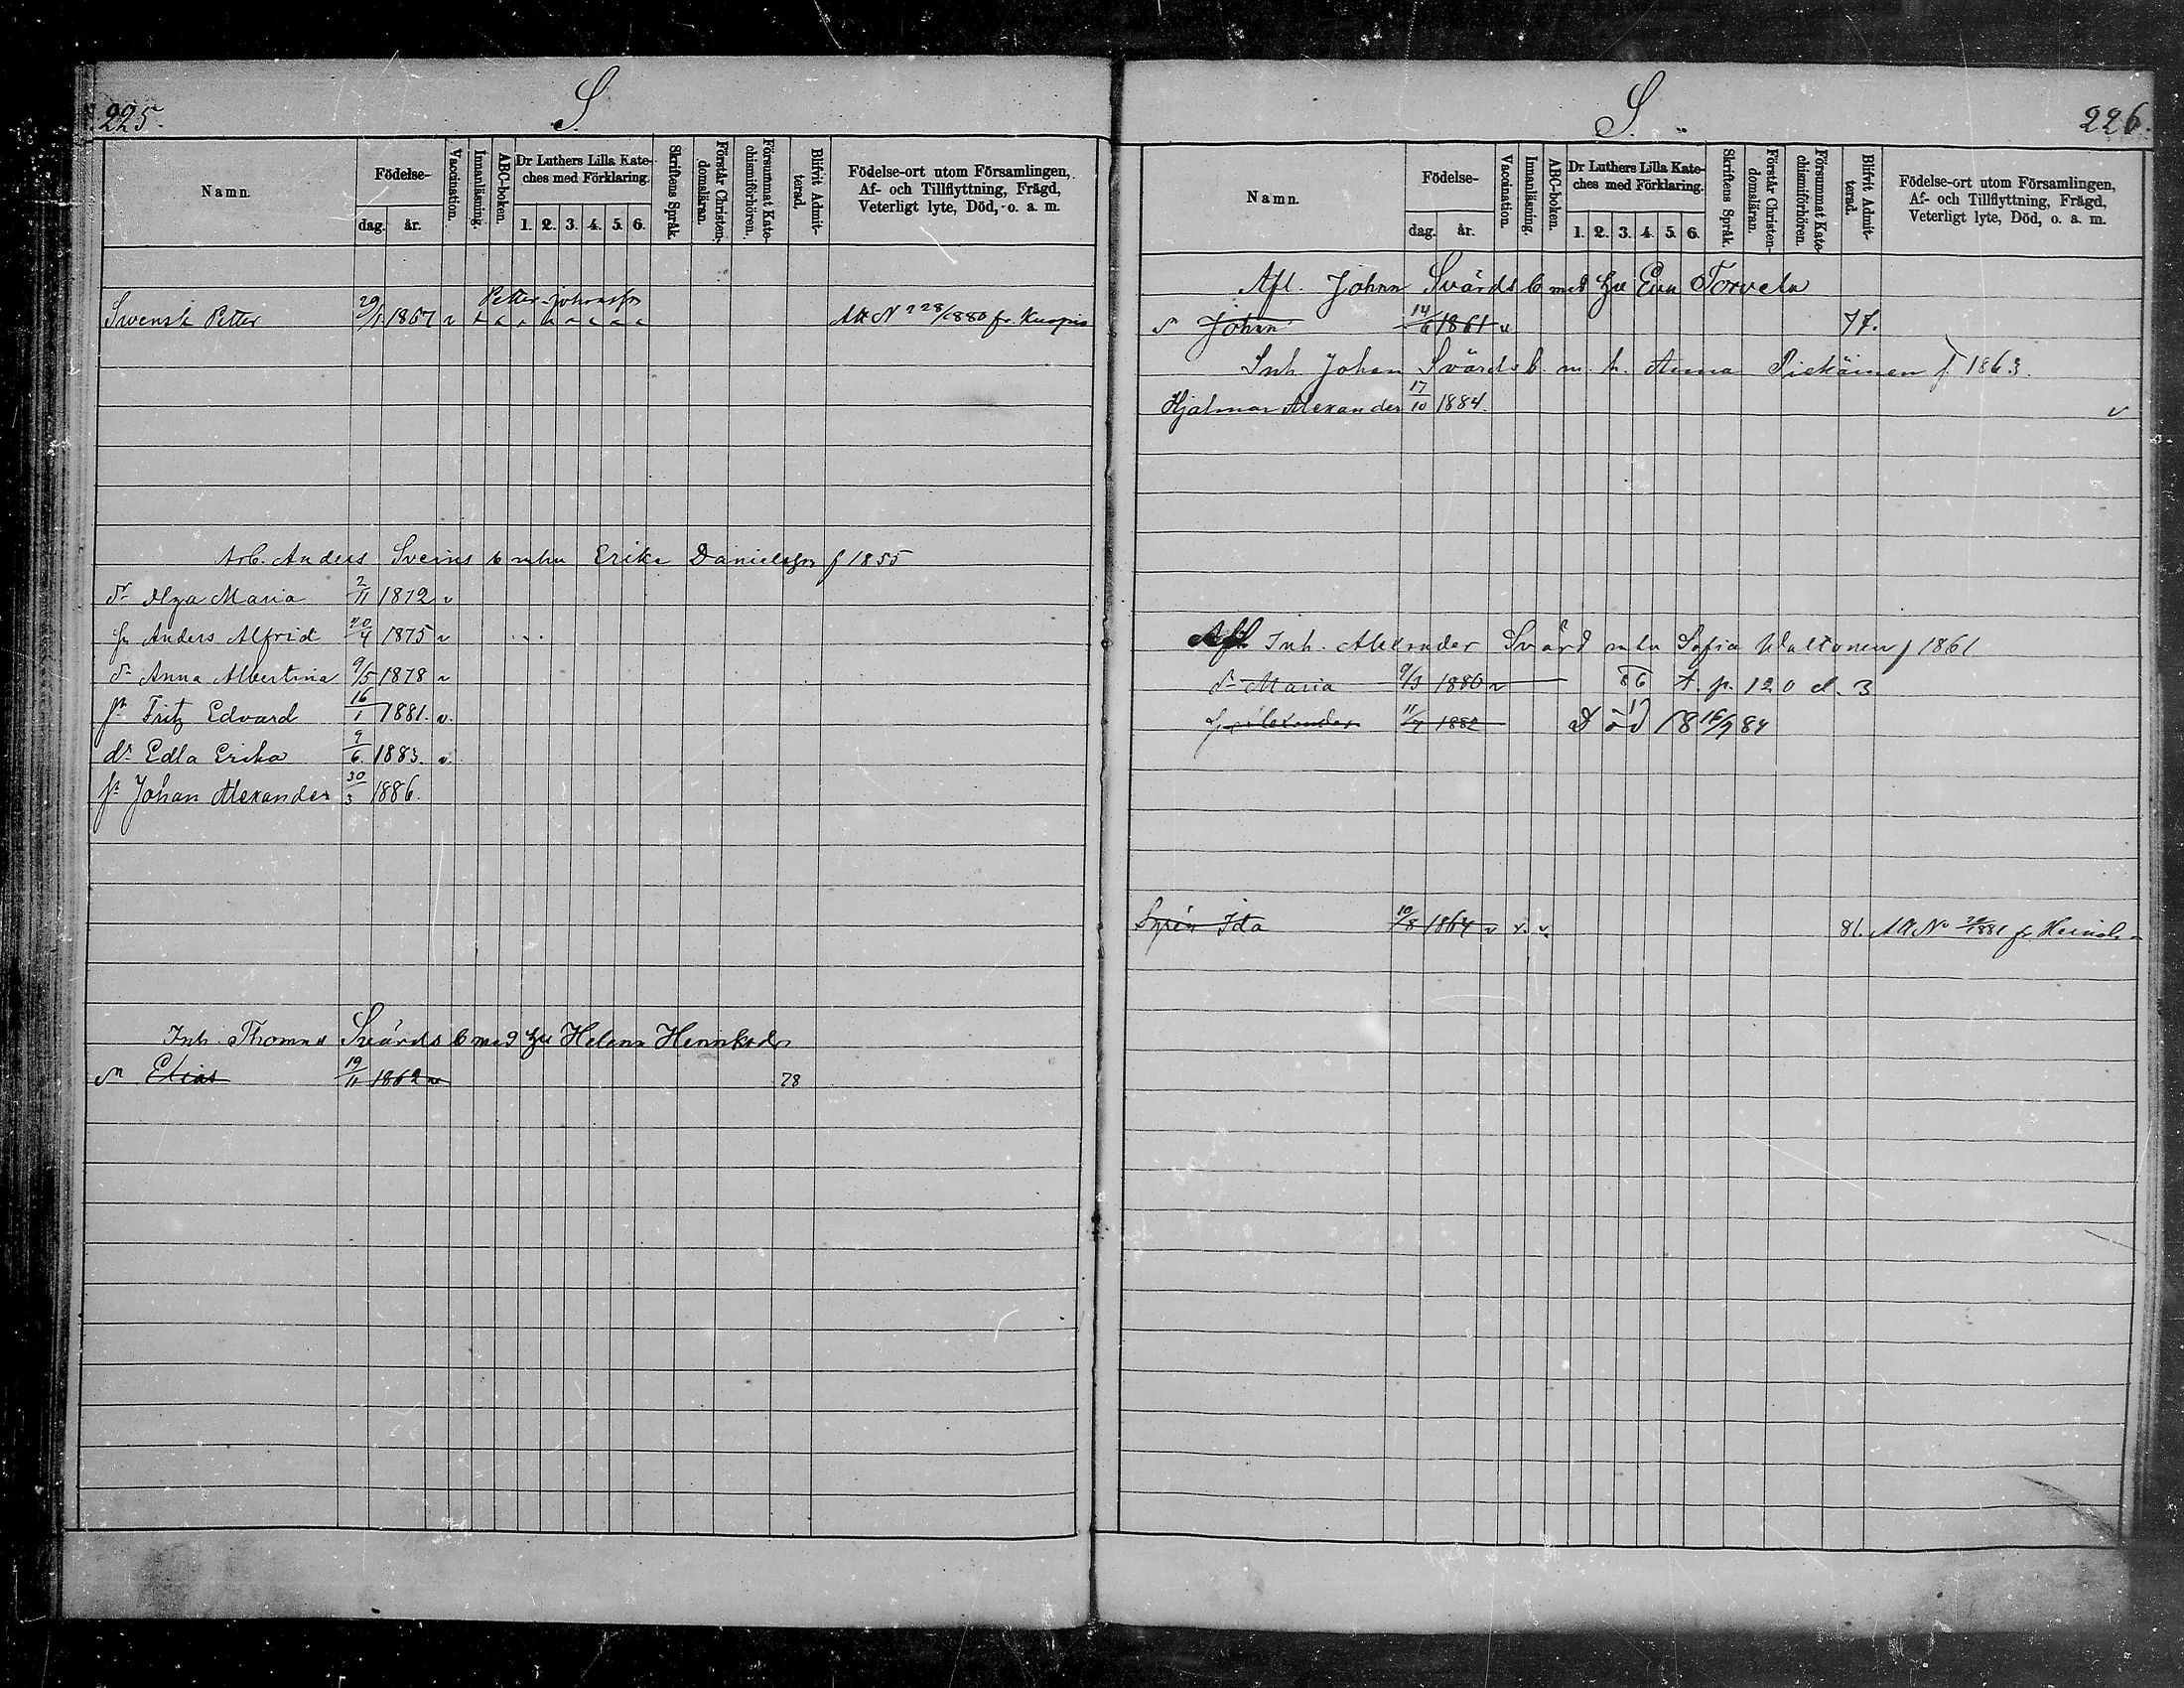 225.
S.
Namn.
Födelse-
dag. år.
Vaccination.
Innanläsning.
ABC-boken.
Dr Luthers Lilla Kate-
ches med Förklaring.
1. 2. 3. 4. 5. 6.
Skriftens Språk.
Förstår Christen-
domsläran.
Försummat Kate-
chismiförhören.
Blifvit Admit-
terad.
Födelse-ort utom Församlingen,
Af- och Tillflyttning, Frägd,
Veterligt lyte, Död, o. a. m.
Petter Johansson
Svensk Petter 29/1 1867 v Att No 28/1880 fr. Kuopio
Arb. Anders Sveins b mhu Erika Danielsson f 1855
dr Olga Maria 2/11 1872 v
sn Anders Alfrid 20/4 1875 v
dr Anna Albertina 9/5 1878 v
sn Fritz Edvard 16/1 1881. v.
dr Edla Erika 9/6 1883. v.
sn Johan Alexander 30/3 1886.
Inh. Thomas Svärds b med hu Helena Henriksdr
sn Elias 19/11 1862 v 78
S.
226.
Namn.
Födelse-
dag. år.
Vaccination.
Innanläsning.
ABC-boken.
Dr Luthers Lilla Kate-
ches med Förklaring.
1. 2. 3. 4. 5. 6.
Skriftens Språk.
Förstår Christen-
domsläran.
Försummat Kate-
chismiförhören.
Blifvit Admit-
terad.
Födelse-ort utom Församlingen,
Af- och Tillflyttning, Frägd,
Veterligt lyte, Död, o. a. m.
Afl. Johan Svärds b med hu Eva Torvela
Johan 14/6 1861 v 77.
Inh. Johan Svärds b. m. h. Anna f. 1863.
Hjalmar Alexander 17/10 1884. v
Afl. Inh. Alexander Svärd mhu Sofia Waltonen f 1861
dr Maria 9/3 1880 v 86 t. p. 120 d. 3
Alexander 11/7 1882 Död 18 16/9 84
Syrén Ida 10/8 1864 v v. v. 81. Att No /1881 fr Heinola